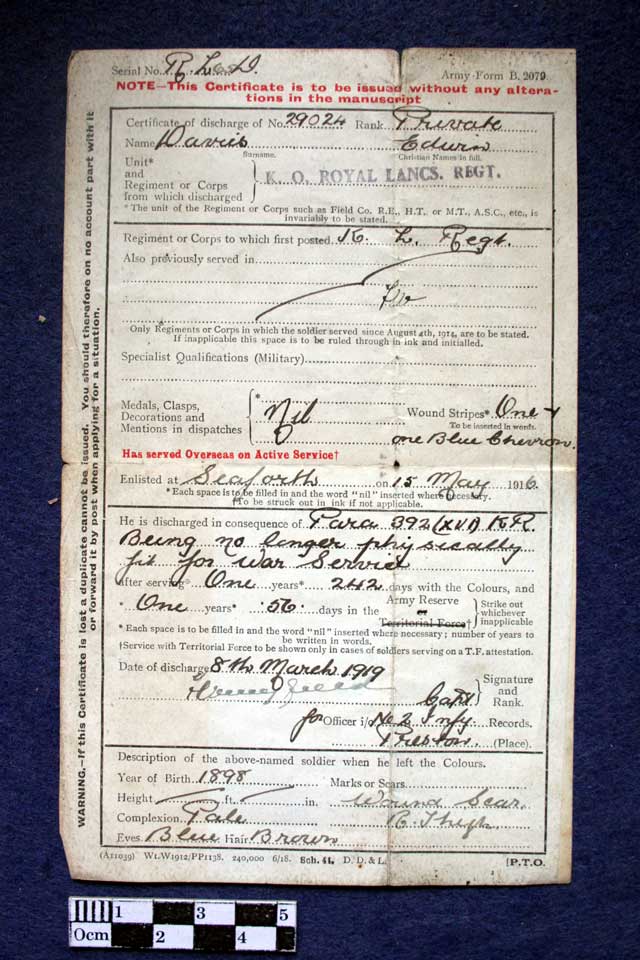 Serial No. R.L.D.
Army Form B. 2079.
NOTE—This Certificate is to be issued without any altera-
tions in the manuscript
Certificate of discharge of No. 29024 Rank Private
Name Davies Edwin
Surname. Christian Names in full.
Unit*
and
Regiment or Corps
from which discharged
K. O. ROYAL LANCS. REGT.
* The unit of the Regiment or Corps such as Field Co. R.E., H.T. or M.T., A.S.C., etc., is
invariably to be stated.
Regiment or Corps to which first posted R. L. Regt.
Also previously served in
Only Regiments or Corps in which the soldier served since August 4th, 1914, are to be stated.
If inapplicable this space is to be ruled through in ink and initialled.
Specialist Qualifications (Military)
Medals, Clasps,
Decorations and
Mentions in dispatches
* Nil
Wound Stripes* One +
To be inserted in words.
one Blue Chevron.
Has served Overseas on Active Service†
Enlisted at Seaforth on 15 May 1916
*Each space is to be filled in and the word "nil" inserted where necessary.
†To be struck out in ink if not applicable.
He is discharged in consequence of Para 392 (XVI) K.R.
Being no longer physically
fit for War Service
after serving* One years* 242 days with the Colours, and
* One years* 56 days in the Army Reserve or Territorial Force† Strike out whichever inapplicable
* Each space is to be filled in and the word "nil" inserted where necessary; number of years to
be written in words.
†Service with Territorial Force to be shown only in cases of soldiers serving on a T.F. attestation.
Date of discharge 8th March 1919
Signature
and
Rank.
Capt
for Officer i/c No 2 Infy Records.
Preston (Place).
Description of the above-named soldier when he left the Colours.
Year of Birth 1898 Marks or Scars
Height ft. in. Wound Scar
Complexion Pale R. Thigh
Eyes Blue Hair Brown
(A11039) Wt.W1912/PP1138. 240,000 6/18. Sch. 41. D. D. & L. [P.T.O.
WARNING.—If this Certificate is lost a duplicate cannot be issued. You should therefore on no account part with it
or forward it by post when applying for a situation.
0cm 1 2 3 4 5